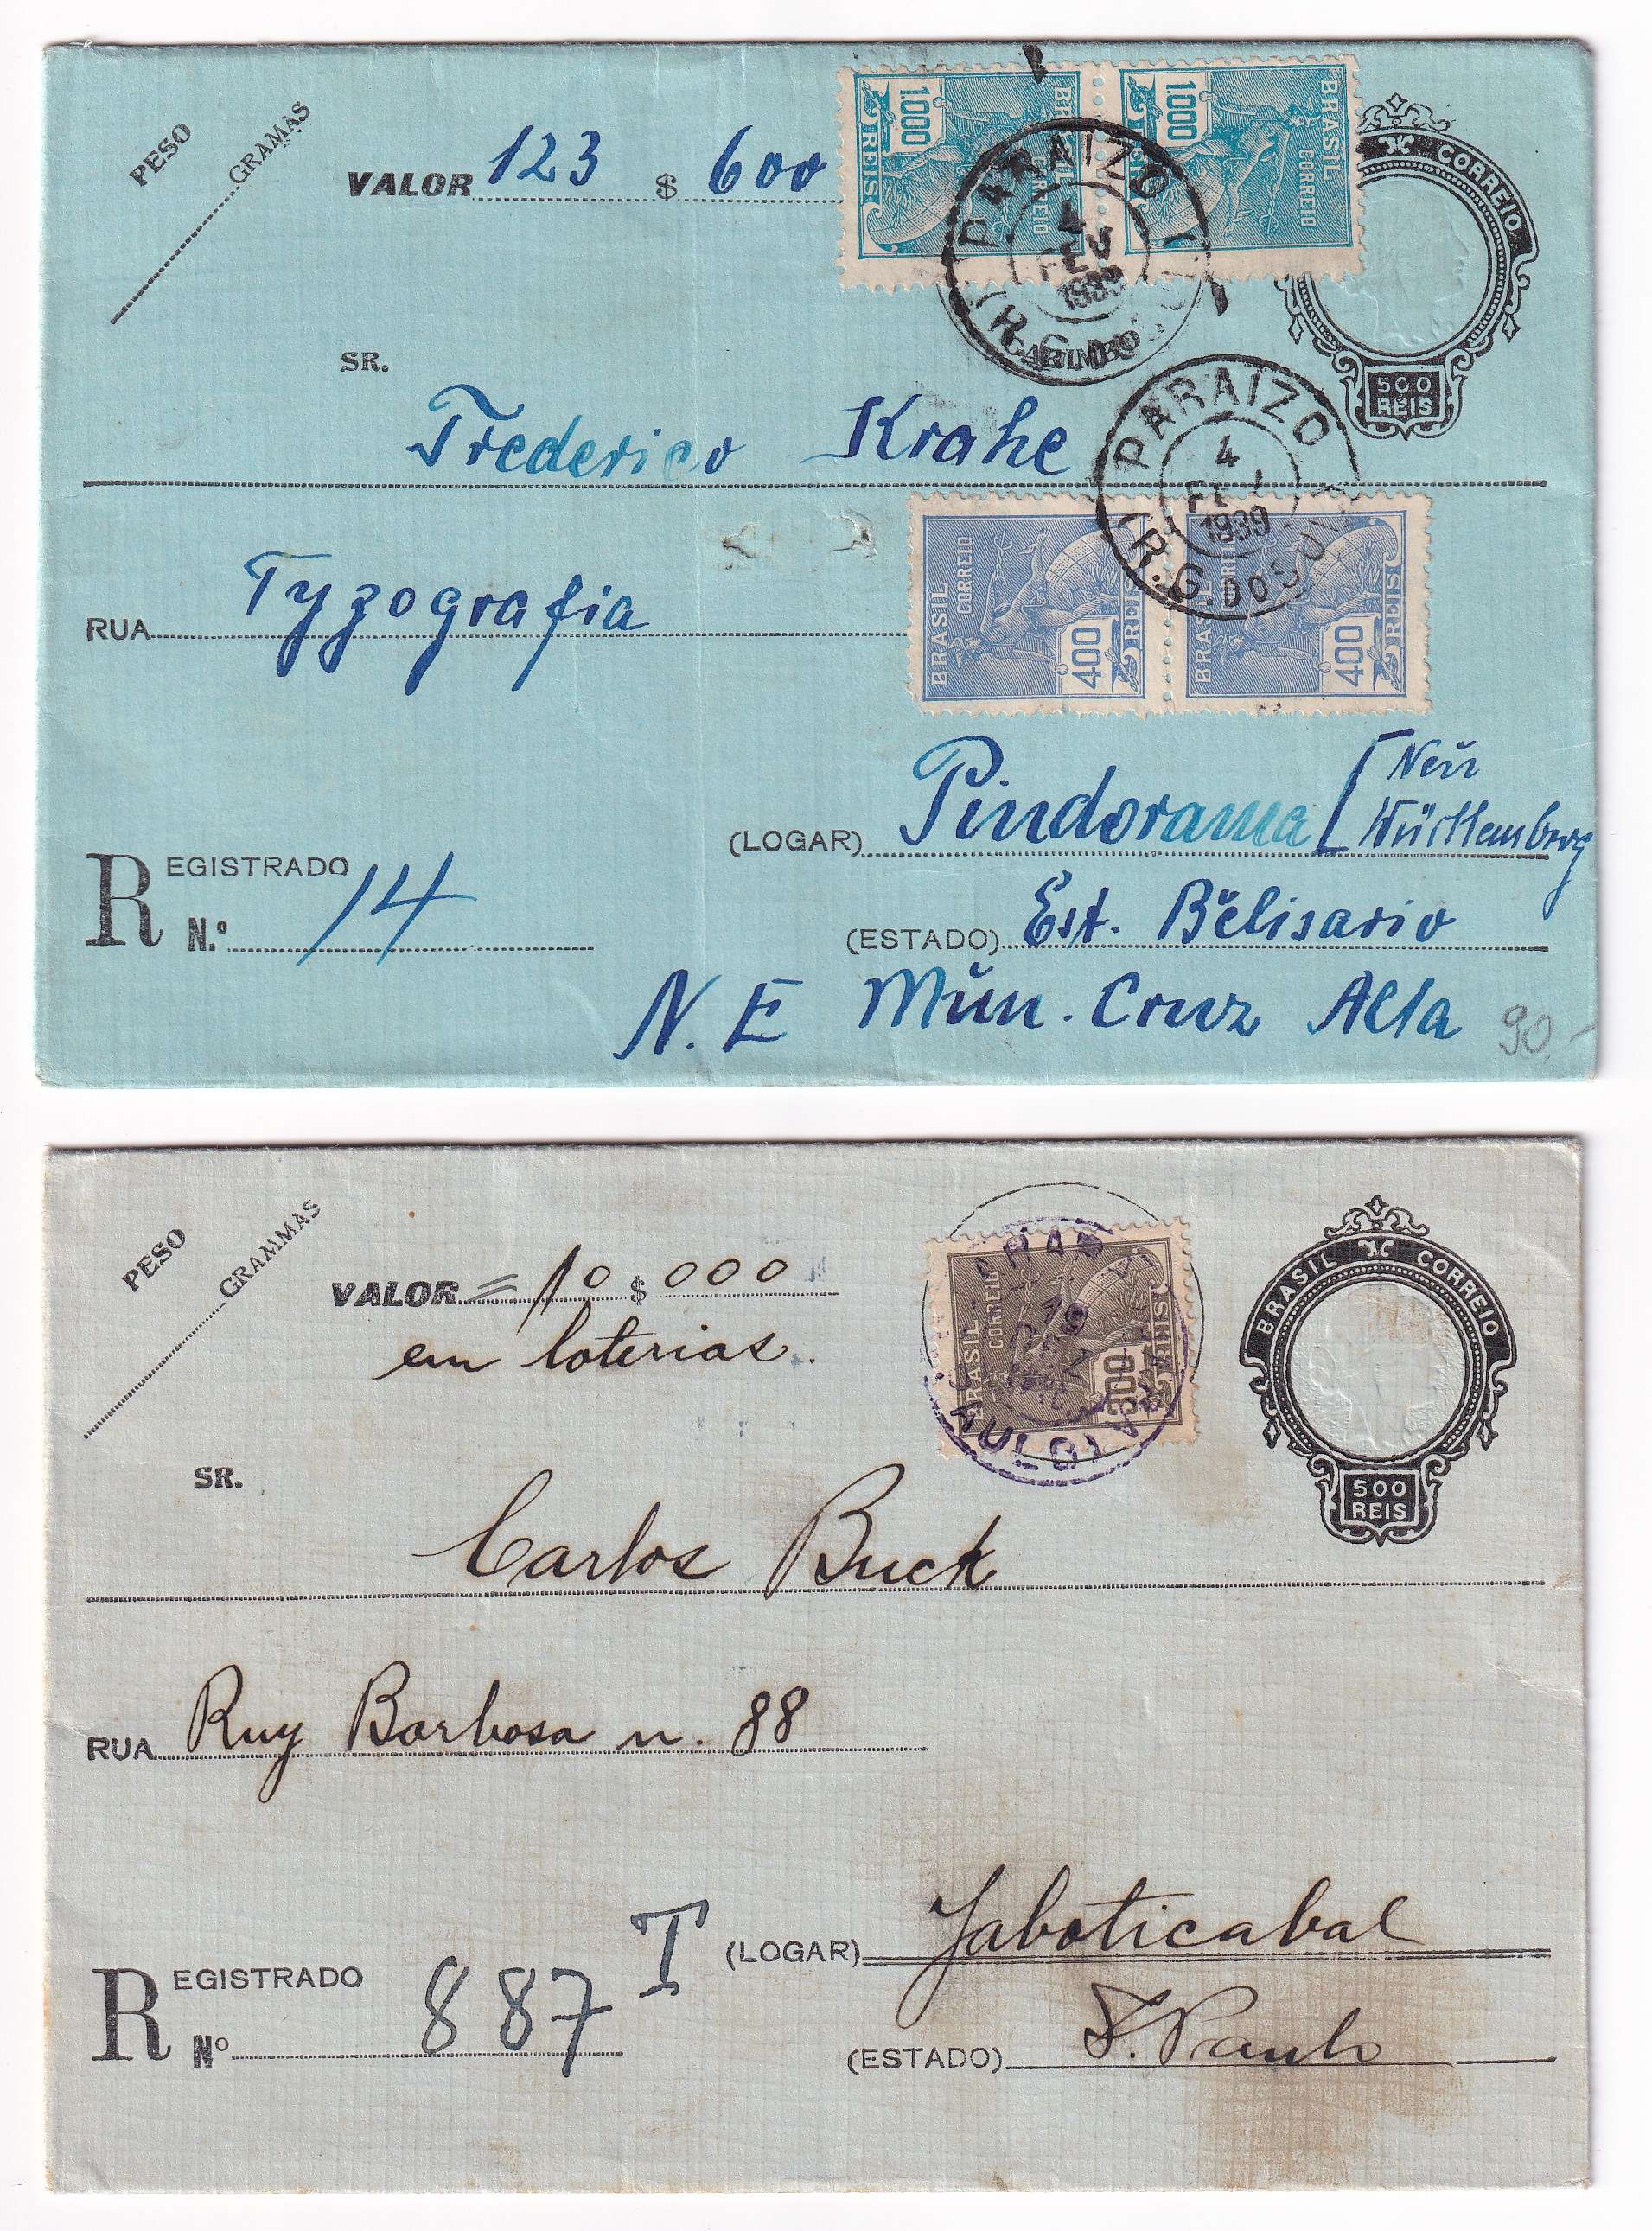 PESO
GRAMAS
VALOR 123 $ 600
BRASIL CORREIO
1.000 REIS
BRASIL CORREIO
1.000 REIS
CORREIO
500
REIS
PARAIZO
4
FEV
1939
(R.G. DO SUL)
CARIMBO
SR.
Frederico Krahe
PARAIZO
4
1939
(R.G. DO SUL)
RUA Tyzografia
BRASIL CORREIO
400 REIS
BRASIL
400 REIS
(LOGAR) Pindorama [Neŭ
Württemberg
REGISTRADO
N.º 14
(ESTADO) Est. Bĕlisario
N. E Mŭn. Cruz Alta
90.-
PESO
GRAMMAS
VALOR = 10 $ 000
em loterias.
BRASIL CORREIO
300 REIS
19
BRASIL CORREIO
500
REIS
SR.
Carlos Buck
RUA Ruy Barbosa n. 88
REGISTRADO
Nº 887 T
(LOGAR) Jaboticabal
(ESTADO) S. Paulo